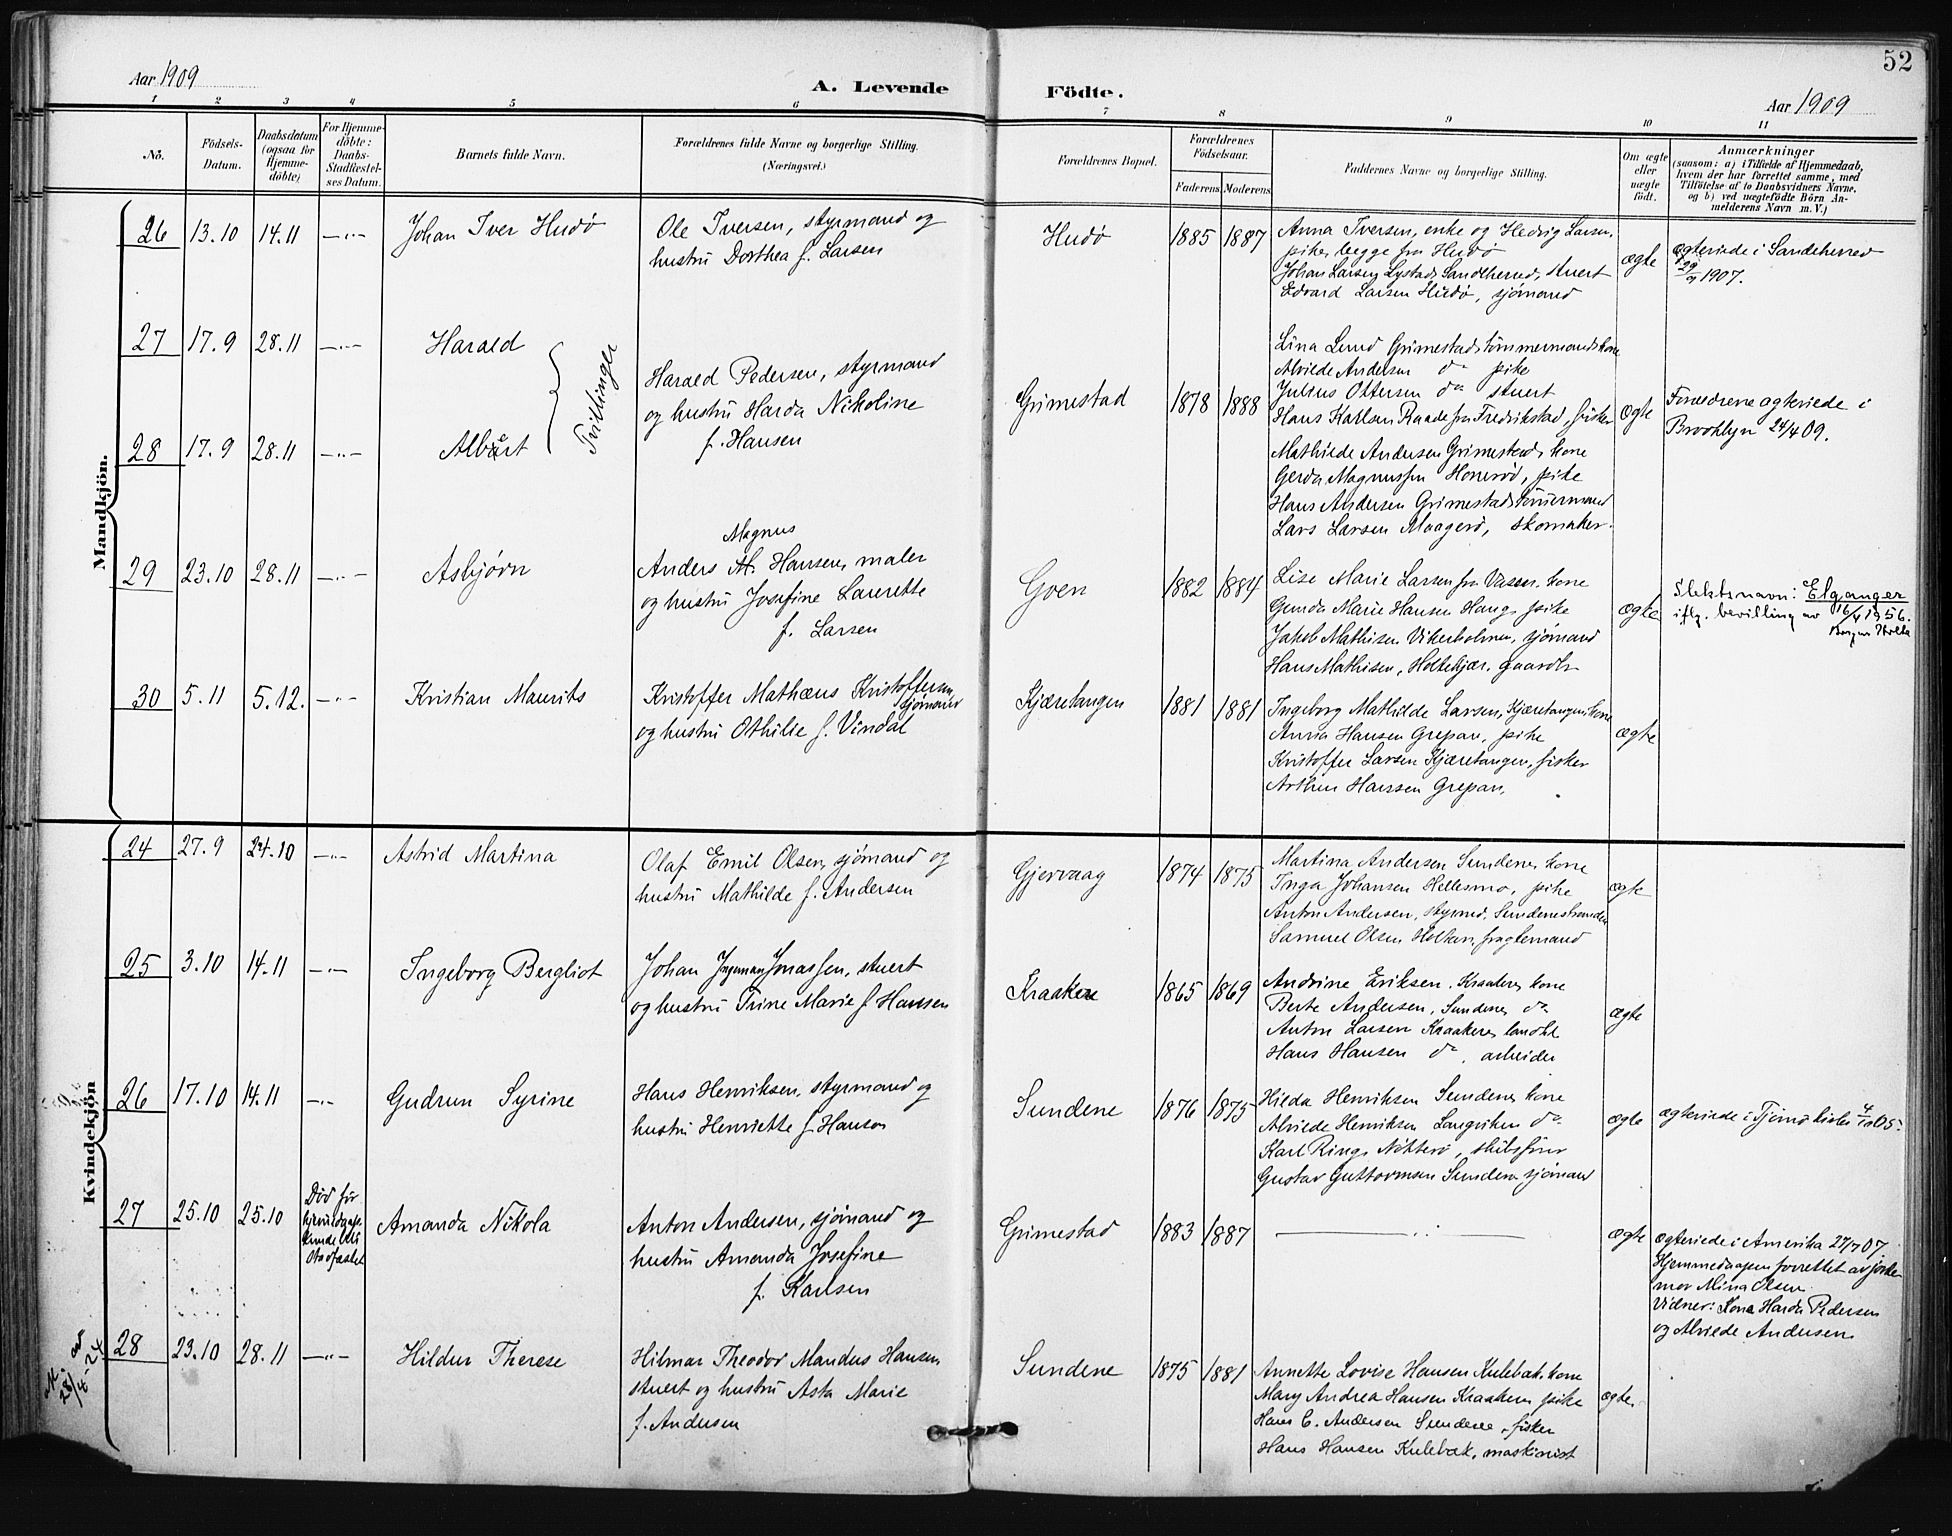 52
Aar 1909
A. Levende
Födte.
Aar 1909
1 2 3 4 5 6 7 8 9 10 11
No.
Födsels-
Datum.
Daabsdatum
(ogsaa for
Hjemme-
döbte)
For Hjemme-
döbte:
Daabs-
Stadfæstel-
ses Datum.
Barnets fulde Navn.
Forældrenes fulde Navne og borgerlige Stilling.
(Næringsvei.)
Forældrenes Bopæl.
Forældrenes
Födselsaar.
Faderens. Moderens.
Faddernes Navne og borgerlige Stilling.
Om ægte
eller
uægte
födt.
Anmærkninger
(saasom: a) i Tilfælde af Hjemmedaab,
hvem der har forrettet samme, med
Tilföielse af to Daabsvidners Navne,
og b) ved uægtefödte Börn An-
melderens Navn m. V.)
Mandkjön.
26 13.10 14.11 —"— Johan Iver Hudø
Ole Iversen, styrmand og
hustru Dorthea f. Larsen
Hudø 1885 1887
Anna Iversen, enke og Hedvig Larsen,
pike, begge fra Hudø
Johan Larsen Lystad, Sandeherred, stuert
Edvard Larsen Hudø, sjømand
ægte
ægteviede i Sandeherred
1907.
27 17.9 28.11 —"— Harald
28 17.9 28.11 —"— Albert
Tvillinger
Harald Pedersen, styrmand
og hustru Harda Nikoline
f. Hansen
Grimestad 1878 1888
Lina Lund Grimestad, tømmermandskone
Alvilde Andersen do pike
Julius Ottersen do stuert
Hans Karlsen Raade fra Fredrikstad, fisker
Mathilde Andersen Grimestad, kone
Gerda Magnussen Honerød, pike
Hans Andersen Grimestad, tømmermand
Lars Larsen Maagerø, skomaker.
ægte
Forældrene ægteviede i
Brooklyn 24/4 09.
29 23.10 28.11 —"— Asbjørn
Magnus
Anders M. Hansen, maler
og hustru Josefine Laurette
f. Larsen
Goen 1882 1884
Lise Marie Larsen fra Vasser, kone
Gunda Marie Hansen Haug, pike
Jakob Mathisen Vikerholmen, sjømand
Hans Mathisen, Holtekjær, gaardbr
ægte
Slektsnavn: Elganger
iflg. bevilling av 16/4 1956.
30 5.11 5.12. —"— Kristian Maurits
Kristoffer Mathæus Kristoffersen,
sjømand
og hustru Othilie f. Vindal
Kjæretangen 1881 1881
Ingeborg Mathilde Larsen, Kjæretangen, kone
Anna Hansen Grepan, pike
Kristoffer Larsen Kjæretangen, fisker
Arthur Hansen Grepan,
ægte
Kvindekjön
24 27.9 24.10 —"— Astrid Martina
Olaf Emil Olsen, sjømand og
hustru Mathilde f. Andersen
Gjervaag 1874 1875
Martina Andersen Sundene, kone
Inga Johansen Hellesmo, pike
Anton Andersen, styrmd, Sundenestranden
Samuel Olsen Holtan, fragtemand
ægte
25 3.10 14.11 —"— Ingeborg Bergliot
Johan Ingman Jonassen, stuert
og hustru Trine Marie f. Hansen
Kraakere 1865 1869
Andrine Eriksen, Kraakere, kone
Berte Andersen, Sundene do
Anton Larsen Kraakere, landhl
Hans Hansen do, arbeider
ægte
26 17.10 14.11 —"— Gudrun Syrine
Hans Henriksen, styrmand og
hustru Henriette f. Hansen
Sundene 1876 1875
Hilda Henriksen Sundene, kone
Alvilde Henriksen Langviken do
Karl Ring, Nøtterø, skibsfører
Gustav Guttormsen Sundene, sjømand
ægte
ægteviede i Tjømø kirke 4/10 05.
27 25.10 25.10
Død før
hjemmedaaps
kunde bli
stadfæstet
Amanda Nikola
Anton Andersen, sjømand og
hustru Amanda Josefine
f. Karlsen
Grimestad 1883 1887
ægte
ægteviede i Amerika 27/7 07.
Hjemmedaapen forrettet av jorde
mor Mina Olsen
Vidner: Kone Harda Pedersen
og Alvilde Andersen
28 23.10 28.11 —"— Hildur Therese
Hilmar Theodor Mandus Hansen
stuert og hustru Asta Marie
f. Andersen
Sundene 1875 1881
Annette Lovise Hansen Kulebak, kone
Mary Andrea Hansen Kraakere, pike
Hans C. Andersen Sundene, fisker
Hans Hansen Kulebak, maskinist
ægte.